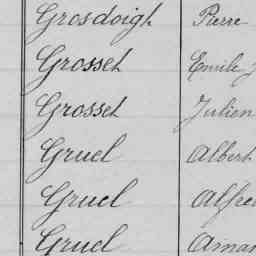 Grosdoigh Pierre
Grosset Emile
Grosset Julien
Gruel Albert
Gruel
Gruel